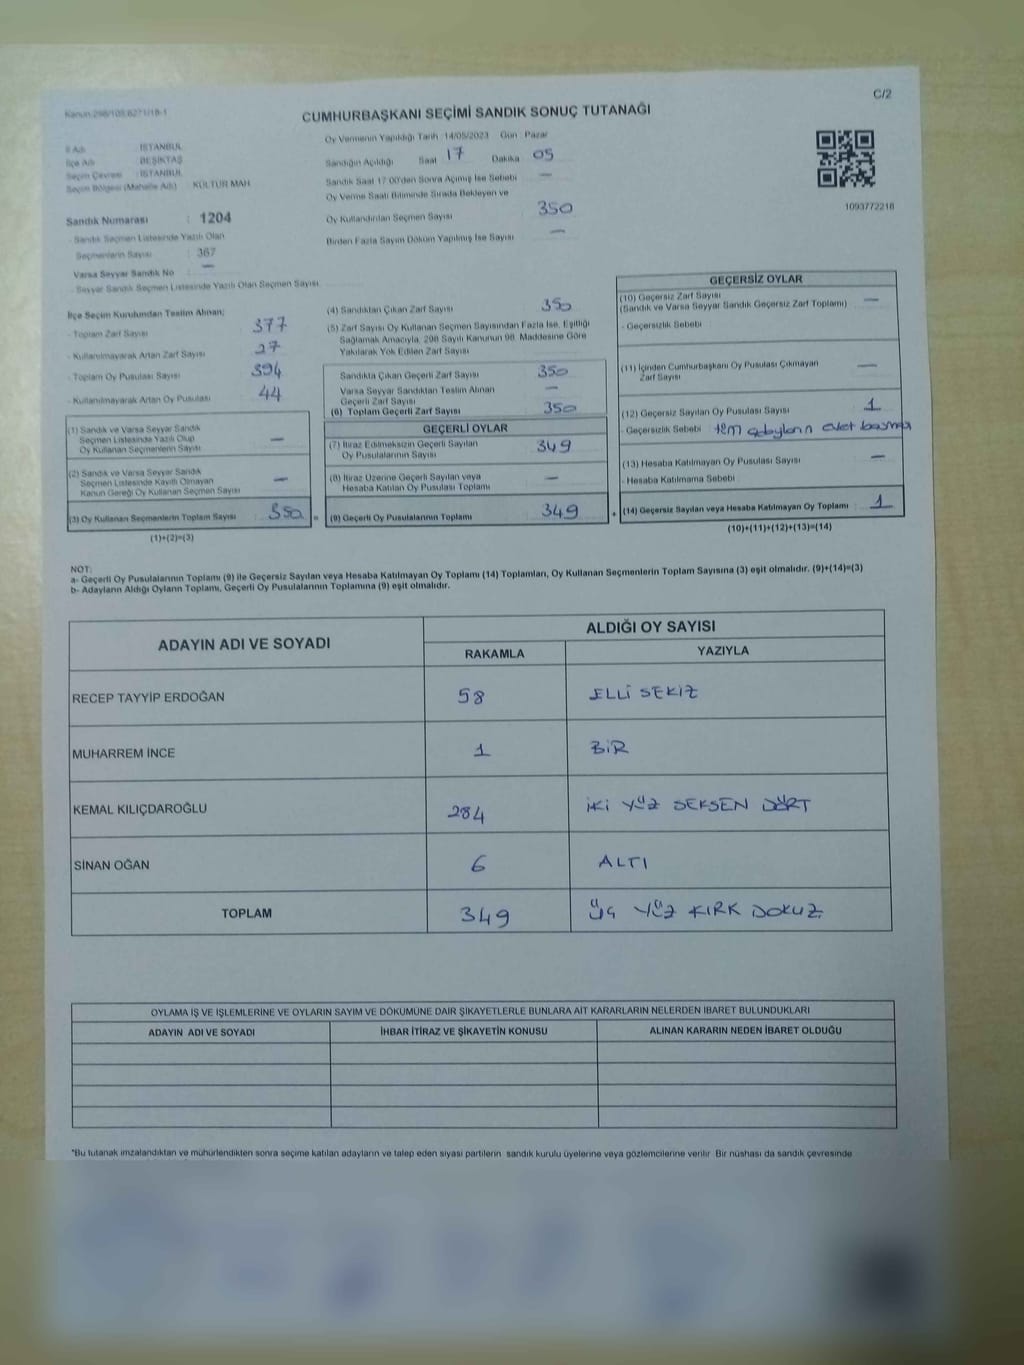 Kanun:298/105,6271/18-1
C/2
CUMHURBAŞKANI SEÇİMİ SANDIK SONUÇ TUTANAĞI
İl Adı : İSTANBUL
İlçe Adı : BEŞİKTAŞ
Seçim Çevresi : İSTANBUL
Seçim Bölgesi (Mahalle Adı) : KÜLTÜR MAH.
Sandık Numarası : 1204
- Sandık Seçmen Listesinde Yazılı Olan
Seçmenlerin Sayısı : 367
Varsa Seyyar Sandık No : —
- Seyyar Sandık Seçmen Listesinde Yazılı Olan Seçmen Sayısı
Oy Vermenin Yapıldığı Tarih : 14/05/2023 Gün : Pazar
Sandığın Açıldığı Saat 17 Dakika 05
Sandık Saat 17:00'den Sonra Açılmış İse Sebebi —
Oy Verme Saati Bitiminde Sırada Bekleyen ve
Oy Kullandırılan Seçmen Sayısı 350
Birden Fazla Sayım Döküm Yapılmış İse Sayısı —
1093772218
İlçe Seçim Kurulundan Teslim Alınan;
- Toplam Zarf Sayısı 377
- Kullanılmayarak Artan Zarf Sayısı 27
- Toplam Oy Pusulası Sayısı 394
- Kullanılmayarak Artan Oy Pusulası 44
(1) Sandık ve Varsa Seyyar Sandık
Seçmen Listesinde Yazılı Olup
Oy Kullanan Seçmenlerin Sayısı —
(2) Sandık ve Varsa Seyyar Sandık
Seçmen Listesinde Kayıtlı Olmayan
Kanun Gereği Oy Kullanan Seçmen Sayısı —
(3) Oy Kullanan Seçmenlerin Toplam Sayısı : 350 =
(1)+(2)=(3)
(4) Sandıktan Çıkan Zarf Sayısı 350
(5) Zarf Sayısı Oy Kullanan Seçmen Sayısından Fazla İse, Eşitliği
Sağlamak Amacıyla, 298 Sayılı Kanunun 98. Maddesine Göre
Yakılarak Yok Edilen Zarf Sayısı
Sandıkta Çıkan Geçerli Zarf Sayısı 350
Varsa Seyyar Sandıktan Teslim Alınan
Geçerli Zarf Sayısı —
(6) Toplam Geçerli Zarf Sayısı 350
GEÇERLİ OYLAR
(7) İtiraz Edilmeksizin Geçerli Sayılan
Oy Pusulalarının Sayısı 349
(8) İtiraz Üzerine Geçerli Sayılan veya
Hesaba Katılan Oy Pusulası Toplamı —
(9) Geçerli Oy Pusulalarının Toplamı 349 +
GEÇERSİZ OYLAR
(10) Geçersiz Zarf Sayısı
(Sandık ve Varsa Seyyar Sandık Geçersiz Zarf Toplamı) —
- Geçersizlik Sebebi
(11) İçinden Cumhurbaşkanı Oy Pusulası Çıkmayan
Zarf Sayısı —
(12) Geçersiz Sayılan Oy Pusulası Sayısı 1
- Geçersizlik Sebebi tüm adayların evet basması
(13) Hesaba Katılmayan Oy Pusulası Sayısı —
- Hesaba Katılmama Sebebi
(14) Geçersiz Sayılan veya Hesaba Katılmayan Oy Toplamı : 1
(10)+(11)+(12)+(13)=(14)
NOT:
a- Geçerli Oy Pusulalarının Toplamı (9) ile Geçersiz Sayılan veya Hesaba Katılmayan Oy Toplamı (14) Toplamları, Oy Kullanan Seçmenlerin Toplam Sayısına (3) eşit olmalıdır. (9)+(14)=(3)
b- Adayların Aldığı Oyların Toplamı, Geçerli Oy Pusulalarının Toplamına (9) eşit olmalıdır.
ADAYIN ADI VE SOYADI
ALDIĞI OY SAYISI
RAKAMLA
YAZIYLA
RECEP TAYYİP ERDOĞAN 58 ELLİ SEKİZ
MUHARREM İNCE 1 BİR
KEMAL KILIÇDAROĞLU 284 İKİ YÜZ SEKSEN DÖRT
SİNAN OĞAN 6 ALTI
TOPLAM 349 ÜÇ YÜZ KIRK DOKUZ
OYLAMA İŞ VE İŞLEMLERİNE VE OYLARIN SAYIM VE DÖKÜMÜNE DAİR ŞİKAYETLERLE BUNLARA AİT KARARLARIN NELERDEN İBARET BULUNDUKLARI
ADAYIN ADI VE SOYADI
İHBAR İTİRAZ VE ŞİKAYETİN KONUSU
ALINAN KARARIN NEDEN İBARET OLDUĞU
*Bu tutanak imzalandıktan ve mühürlendikten sonra seçime katılan adayların ve talep eden siyasi partilerin sandık kurulu üyelerine veya gözlemcilerine verilir. Bir nüshası da sandık çevresinde